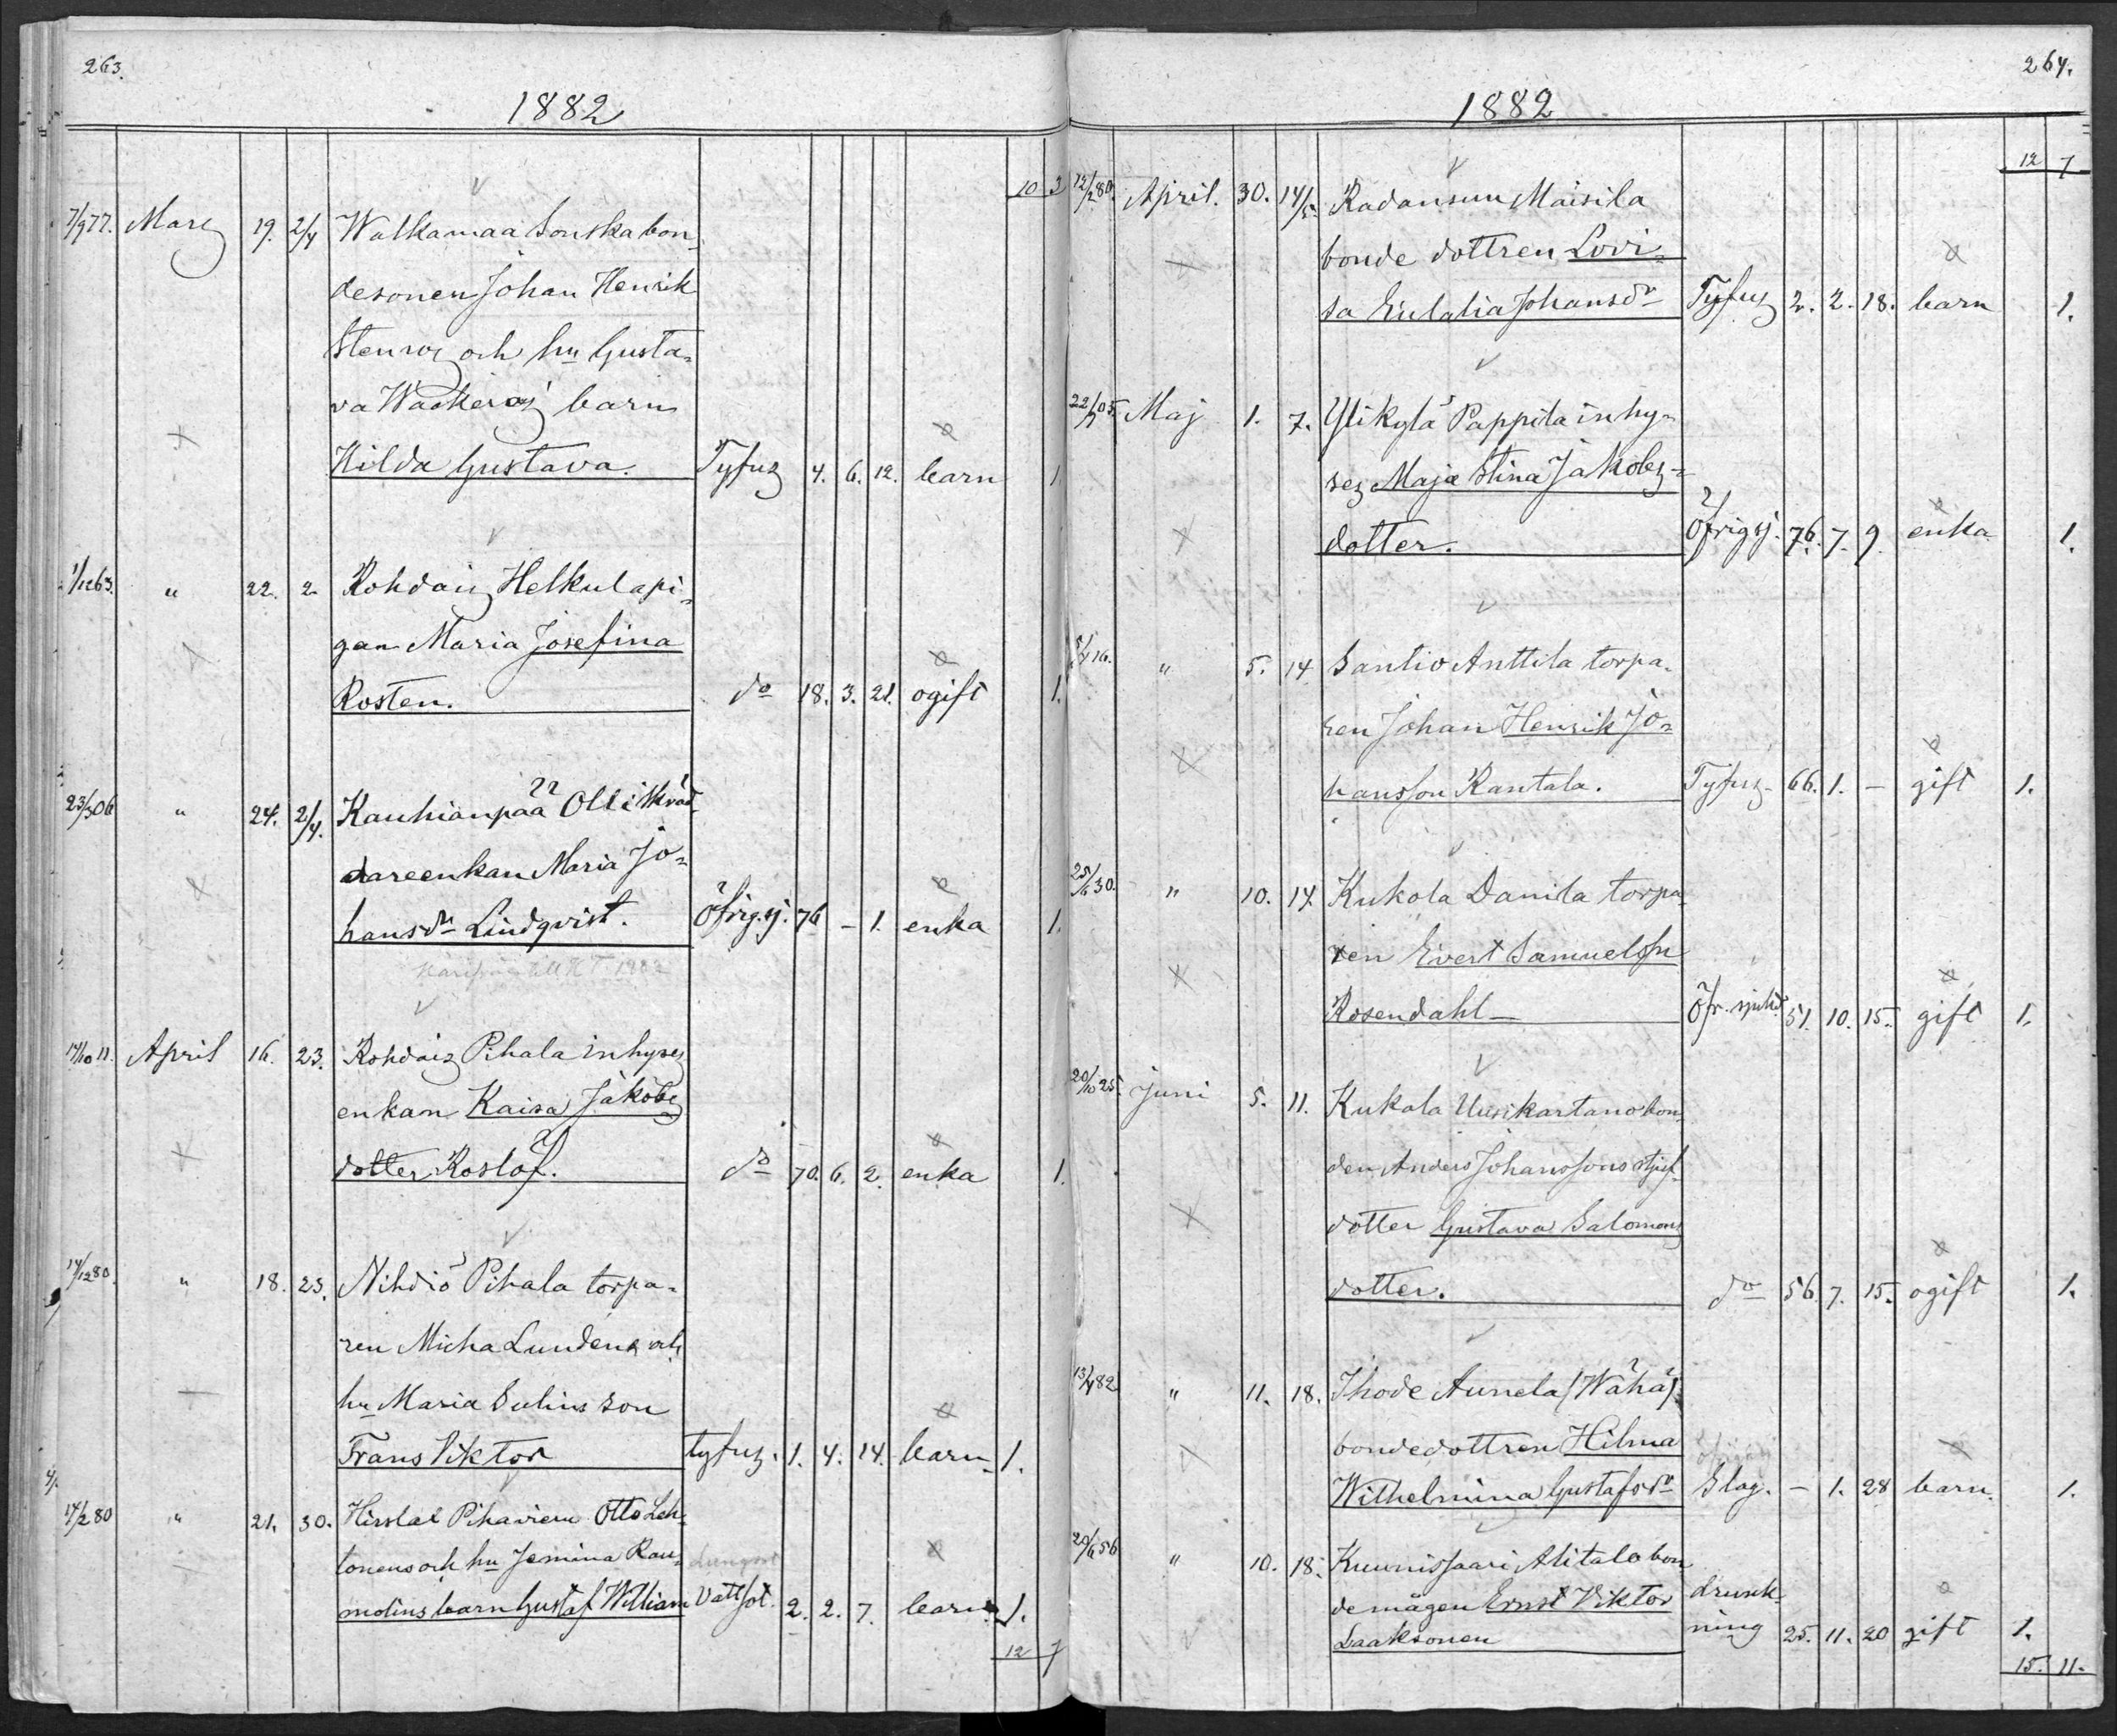 263.
1882
10 3
7/9 77. Mars 19. 2/4 Walkamaa Souska bon-
desonen Johan Henrik
Stenroos och hu Gusta-
va barn
Hilda Gustava. Tyfus 4. 6. 12. barn 1
1/12 63. " 22. 2 Kohdais Helkula pi-
gan Maria Josefina
Rosten. do 18. 3. 21. ogift 1.
23/3 06 " 24. 2/4. Kauhianpää Olli skräd-
dareenkan Maria Jo-
hansdr Lindqvist. Öfrig. sj. 76 - 1. enka 1.
17/10 11. April 16. 23. Kohdais Pihala inhyses
enkan Kaisa Jakobs
dotter Koslöf. do 70. 6. 2. enka 1.
14/12 80. " 18. 23. Nihdiö Pihala torpa-
ren Micha Lundens och
hu Maria Sulins son
Frans Viktor tyfus. 1. 4. 14. barn 1.
14/2 80 " 21. 30. Hirslax Otto Leh-
tonens och hu Jemina Rau- Lungsot
molins barn Gustaf William Vattsot. 2. 2. 7. barn 1.
12 7
264.
1882
12 7
12/2 80. April. 30. 14/5. Radansuu Maisila
bonde dottren Lovi-
sa Eulalia Johansdr Tyfus 2. 2. 18. barn 1.
22/9 05. Maj 1. 7. Ylikylä Pappila inhy-
ses Maja Stina Jakobs-
dotter. Öfrig sj. 76. 7. 9. enka 1.
5/4 16. " 5. 14 Santio Anttila torpa-
ren Johan Henrik Jo-
hansson Rantala. Tyfus 66. 1. - gift 1.
25/6 30. " 10. 14 Kukola Danila torpa-
ren Evert Samuelsson
Rosendahl — Öfr. sjukd 51. 10. 15. gift 1.
20/10 25. Juni 5. 11. Kukola Uusikartano bon-
den Anders Johanssons stjuf-
dotter Gustava Salomons
dotter. do 56. 7. 15. ogift 1.
13/4 82 " 11. 18. Ihode Aunela (Wähä)
bondedottren Hilma
Wilhelmina Gustafsdr Slag. - 1. 28 barn. 1.
20/6 56 " 10. 18. Kuunissaari Alitalo bon
demågen Ernst Viktor drunk-
Laaksonen ning 25. 11. 20 gift 1.
15. 11.